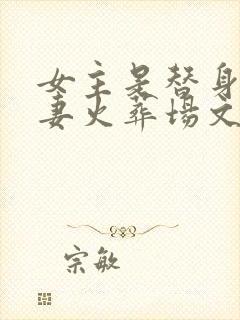 女主是替身
妻火葬场文
宗敏